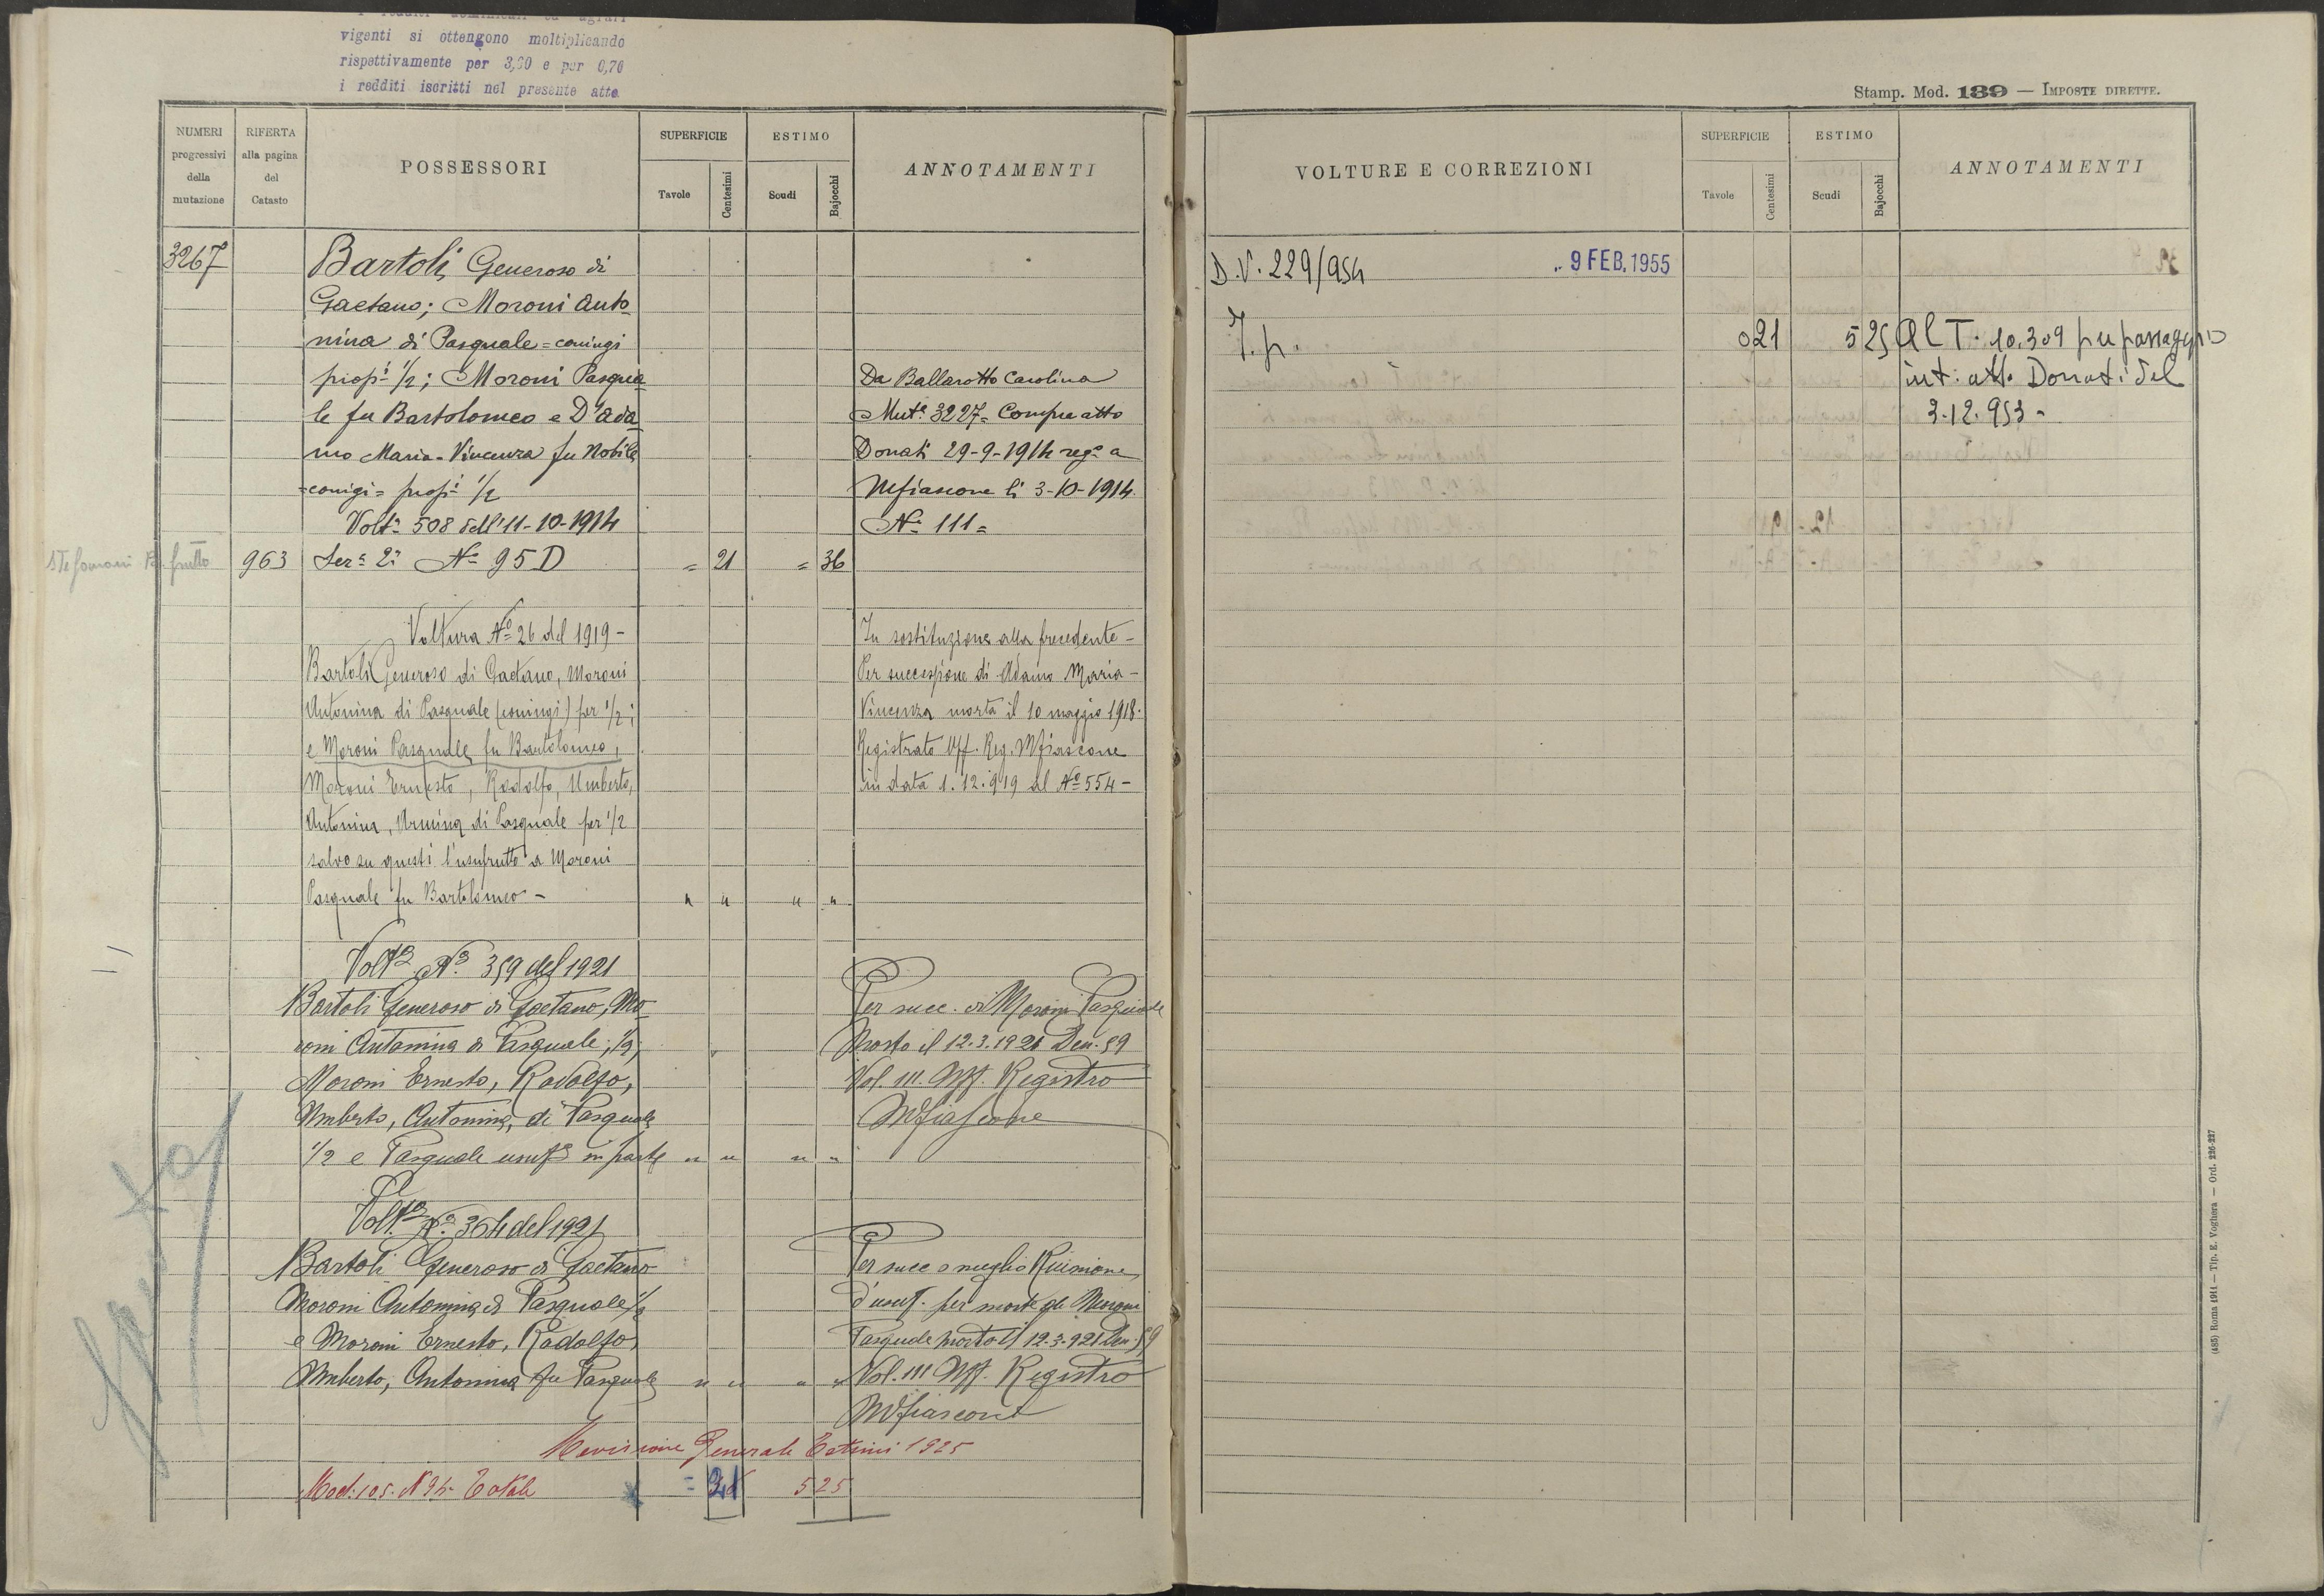 vigenti si ottengono moltiplicando
rispettivamente per 3,60 e per 0,70
i redditi iscritti nel presente atto.
NUMERI progressivi della mutazione
RIFERTA alla pagina del Catasto
POSSESSORI
SUPERFICIE
Tavole
Centesimi
ESTIMO
Scudi
Bajocchi
ANNOTAMENTI
3267
Bartoli Generoso di
Gaetano; Moroni Anto
nina di Pasquale = coniugi
prop.i 1/2; Moroni Pasqua
le fu Bartolomeo e D'Ada
mo Maria-Vincenza fu Nobile
= conigi = prop.i 1/2
Volt.a 508 dell'11-10-1914
963 Ser.e 2.a No 95 D = 21 = 36
Da Ballarotto Carolina
Mut.e 3227 = Compra atto
Donati 29-9-1914 reg.o a
Mfiascone li 3-10-1914.
No 111 =
Voltura No 26 del 1919 -
Bartoli Generoso di Gaetano, Moroni
Antonina di Pasquale (coniugi) per 1/2;
e Moroni Pasquale fu Bartolomeo,
Moroni Ernesto, Rodolfo, Umberto,
Antonina, di Pasquale per 1/2
salvo su questi l'usufrutto a Moroni
Pasquale fu Bartolomeo - " " " "
In sostituzione alla precedente -
Per successione di Adamo Maria -
Vincenza morta il 10 maggio 1918.
Registrato Uff. Reg. Mfiascone
in data 1.12.919 al No 554 -
Volt.a N.o 359 del 1921
Bartoli Generoso di Gaetano, Mo
roni Antonina di Pasquale, 1/2;
Moroni Ernesto, Rodolfo,
Umberto, Antonina, di Pasquale
1/2 e Pasquale usuf.o in parte " " " "
Per succ. di Moroni Pasquale
Morto il 12.3.1921 Den. 59
Vol. 111. Uff. Registro
Mfiascone
Volt.a N.o 364 del 1921
Bartoli Generoso di Gaetano
Moroni Antonina di Pasquale 1/2
e Moroni Ernesto, Rodolfo,
Umberto, Antonina fu Pasquale " " " "
Per succ o meglio Riunione
d'usuf. per morte di Moroni
Pasquale morto il 12-3-921 Den. 59
Vol. 111 Uff. Registro
Mfiascone
Revisione Generale Estimi 1925
Mod: 105. N 94- Totale = 21 525
Stamp. Mod. 139 — IMPOSTE DIRETTE.
VOLTURE E CORREZIONI
SUPERFICIE
Tavole
Centesimi
ESTIMO
Scudi
Bajocchi
ANNOTAMENTI
D.V. 229/954 9 FEB. 1955
T.p. 021 525 Al T. 10.309 per passaggio
int. atto Donati del
3.12.953 -
(485) Roma 1914 — Tip. E. Voghera — Ord. 226-227